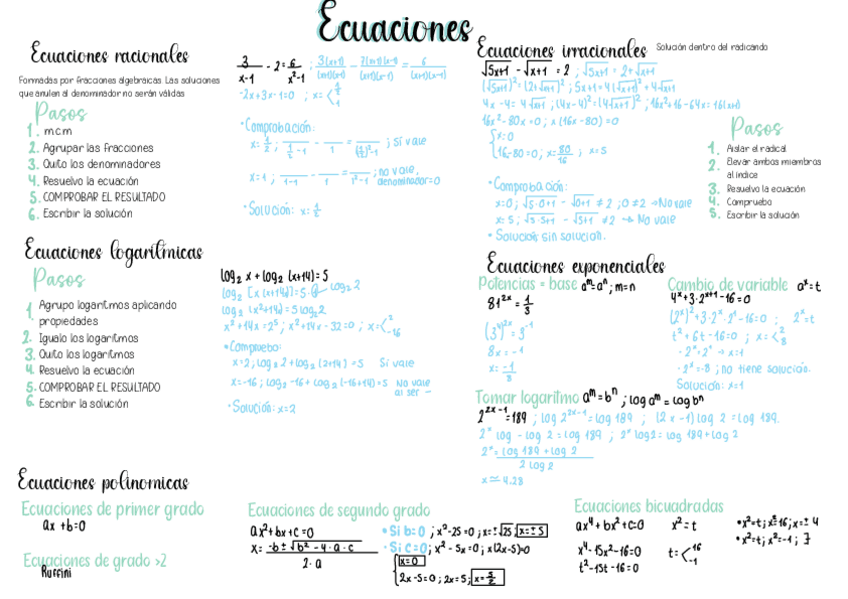 Ecuaciones
Ecuaciones racionales
Formadas por fracciones algebraicas. Las soluciones
que anulen al denominador no serán válidas
Pasos
1. m.c.m
2. Agrupar las fracciones
3. Quito los denominadores
4. Resuelvo la ecuación
5. COMPROBAR EL RESULTADO
6. Escribir la solución
3/(x-1) - 2 = 6/(x²-1) ; 3(x+1)/((x+1)(x-1)) - 2(x+1)(x-1)/((x+1)(x-1)) = 6/((x+1)(x-1))
-2x+3x-1=0 ; x=< 1/2 1
• Comprobación:
x=1/2 ; ; sí vale
x=1 ; ; no vale,
denominador=0
• Solución: x=1/2
Ecuaciones irracionales Solución dentro del radicando
√5x+1 - √x+1 = 2 ; √5x+1 = 2+√x+1
(√5x+1)²=(2+√x+1)² ; 5x+1=4(√x+1)²+4√x+1
4x-4=4√x+1 ; (4x-4)²=(4√x+1)² ; 16x²+16-64x=16(x+1)
16x²-80x=0 ; x(16x-80)=0
x=0
16-80=0 ; x=80/16 ; x=5
• Comprobación:
x=0 ; √5·0+1 - √0+1 ≠ 2 ; 0≠2 → No vale
x=5 ; √5·5+1 - √5+1 ≠2 → No vale
• Solución: sin solución.
Pasos
1. Aislar el radical
2. Elevar ambos miembros
al índice
3. Resuelvo la ecuación
4. Compruebo
5. Escribir la solución
Ecuaciones logarítmicas
Pasos
1. Agrupo logaritmos aplicando
propiedades
2. Igualo los logaritmos
3. Quito los logaritmos
4. Resuelvo la ecuación
5. COMPROBAR EL RESULTADO
6. Escribir la solución
log₂ x + log₂ (x+14)=5
log₂ [x(x+14)]=5 log₂2
log₂ (x²+14x)=5 log₂2
x²+14x=2⁵ ; x²+14x-32=0 ; x=< 2 -16
• Compruebo:
x=2 ; log₂ 2+log₂ (2+14)=5 Sí vale
x=-16 ; log₂ -16+log₂ (-16+14)=5 No vale
al ser -
• Solución: x=2
Ecuaciones exponenciales
Potencias = base aᵐ=aⁿ ; m=n
81²ˣ = 1/3
(3⁴)²ˣ=3⁻¹
8x=-1
x=-1/8
Cambio de variable aˣ=t
4ˣ+3·2ˣ⁺¹-16=0
(2ˣ)²+3·2ˣ·2¹-16=0 ; 2ˣ=t
t²+6t-16=0 ; x=< 2 8
· 2ˣ=2¹ → x=1
· 2ˣ=-8 ; no tiene solución.
Solución: x=1
Tomar logaritmo aᵐ=bⁿ ; log aᵐ = log bⁿ
2²ˣ⁻¹=189 ; log 2²ˣ⁻¹=log 189 ; (2x-1) log 2 = log 189.
2ˣ log - log 2 = log 189 ; 2ˣ log2 = log 189+log 2
2ˣ = (log 189 + log 2)/(2 log 2)
x≃4.28
Ecuaciones polinomicas
Ecuaciones de primer grado
ax +b=0
Ecuaciones de grado >2
Ruffini
Ecuaciones de segundo grado
ax²+bx+c=0
x= (-b±√b²-4·a·c)/(2·a)
• Si b=0 ; x²-25=0 ; x=±√25 ; x=±5
• Si c=0 ; x²-5x=0 ; x(2x-5)=0
x=0
2x-5=0 ; 2x=5 ; x=5/2
Ecuaciones bicuadradas
ax⁴+bx²+c=0 x²=t
x⁴-15x²-16=0
t²-15t-16=0
t=< 16 -1
• x²=t ; x²=16 ; x=±4
• x²=t ; x²=-1 ; ∄